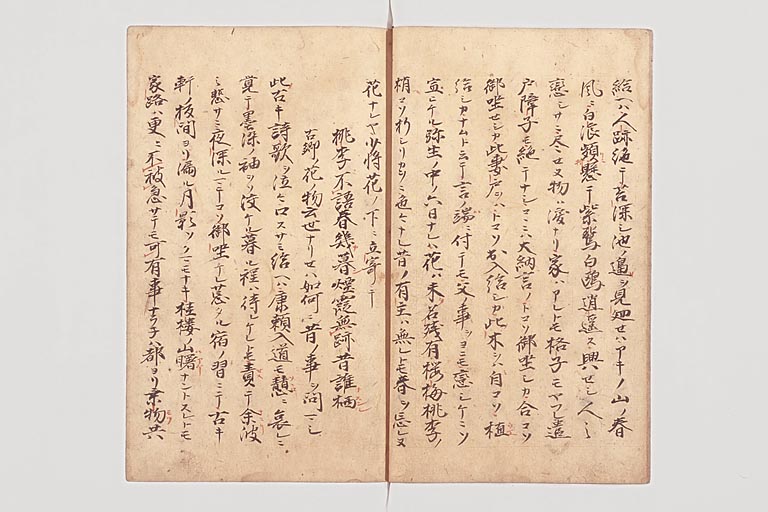 給ヘハ人跡絶テ苔深シ池ノ邊ヲ見廻セハアキノ山ノ春
風ニ白浪頻懸テ紫鴛白鴎逍遥ス興セシ人ノ
恋シサニ尽セヌ物ハ涙ナリ家ハアレトモ格子モヤフレ遣
戸障子モ絶テナシコヽニハ大納言ノトコソ御坐シカ合コソ
御坐セシカ此妻戸ヲハトコソ出入給シカ此木ヲハ自コソ植
給シカナムト云テ言ノ端ニ付テモ父ノ事ヲヨニモ恋シケニソ
宣ヒケル弥生ノ中ノ六日ナレハ花ハ未名残有楊梅桃李ノ
梢コソ折シリカヲニ色々ナレ昔ノ有主ハ無レトモ春ヲ忘レヌ
花ナレヤ少将花ノ下ニ立寄テ
桃李不語春幾暮煙霞無跡昔誰栖
古郷ノ花ノ物云世ナリセハ如何ニ昔ノ事ヲ問マシ
此古キ詩歌ヲ泣々口スサミ給ヘハ康頼入道モ哀レニ
覚テ墨染ノ袖ヲソ絞ケル暮ル程ハ待ケレトモ責テ余波
ニ悲サニ夜深ルマテコソ御坐ケレ荒タル宿ノ習ニテ古キ
軒ノ板間ヨリ漏ル月影ソクマモナキ桂楼ノ山曙ナントスレトモ
家路ハ更ニ不被急サテモ可有事ナラネハ都ヨリ乗物共